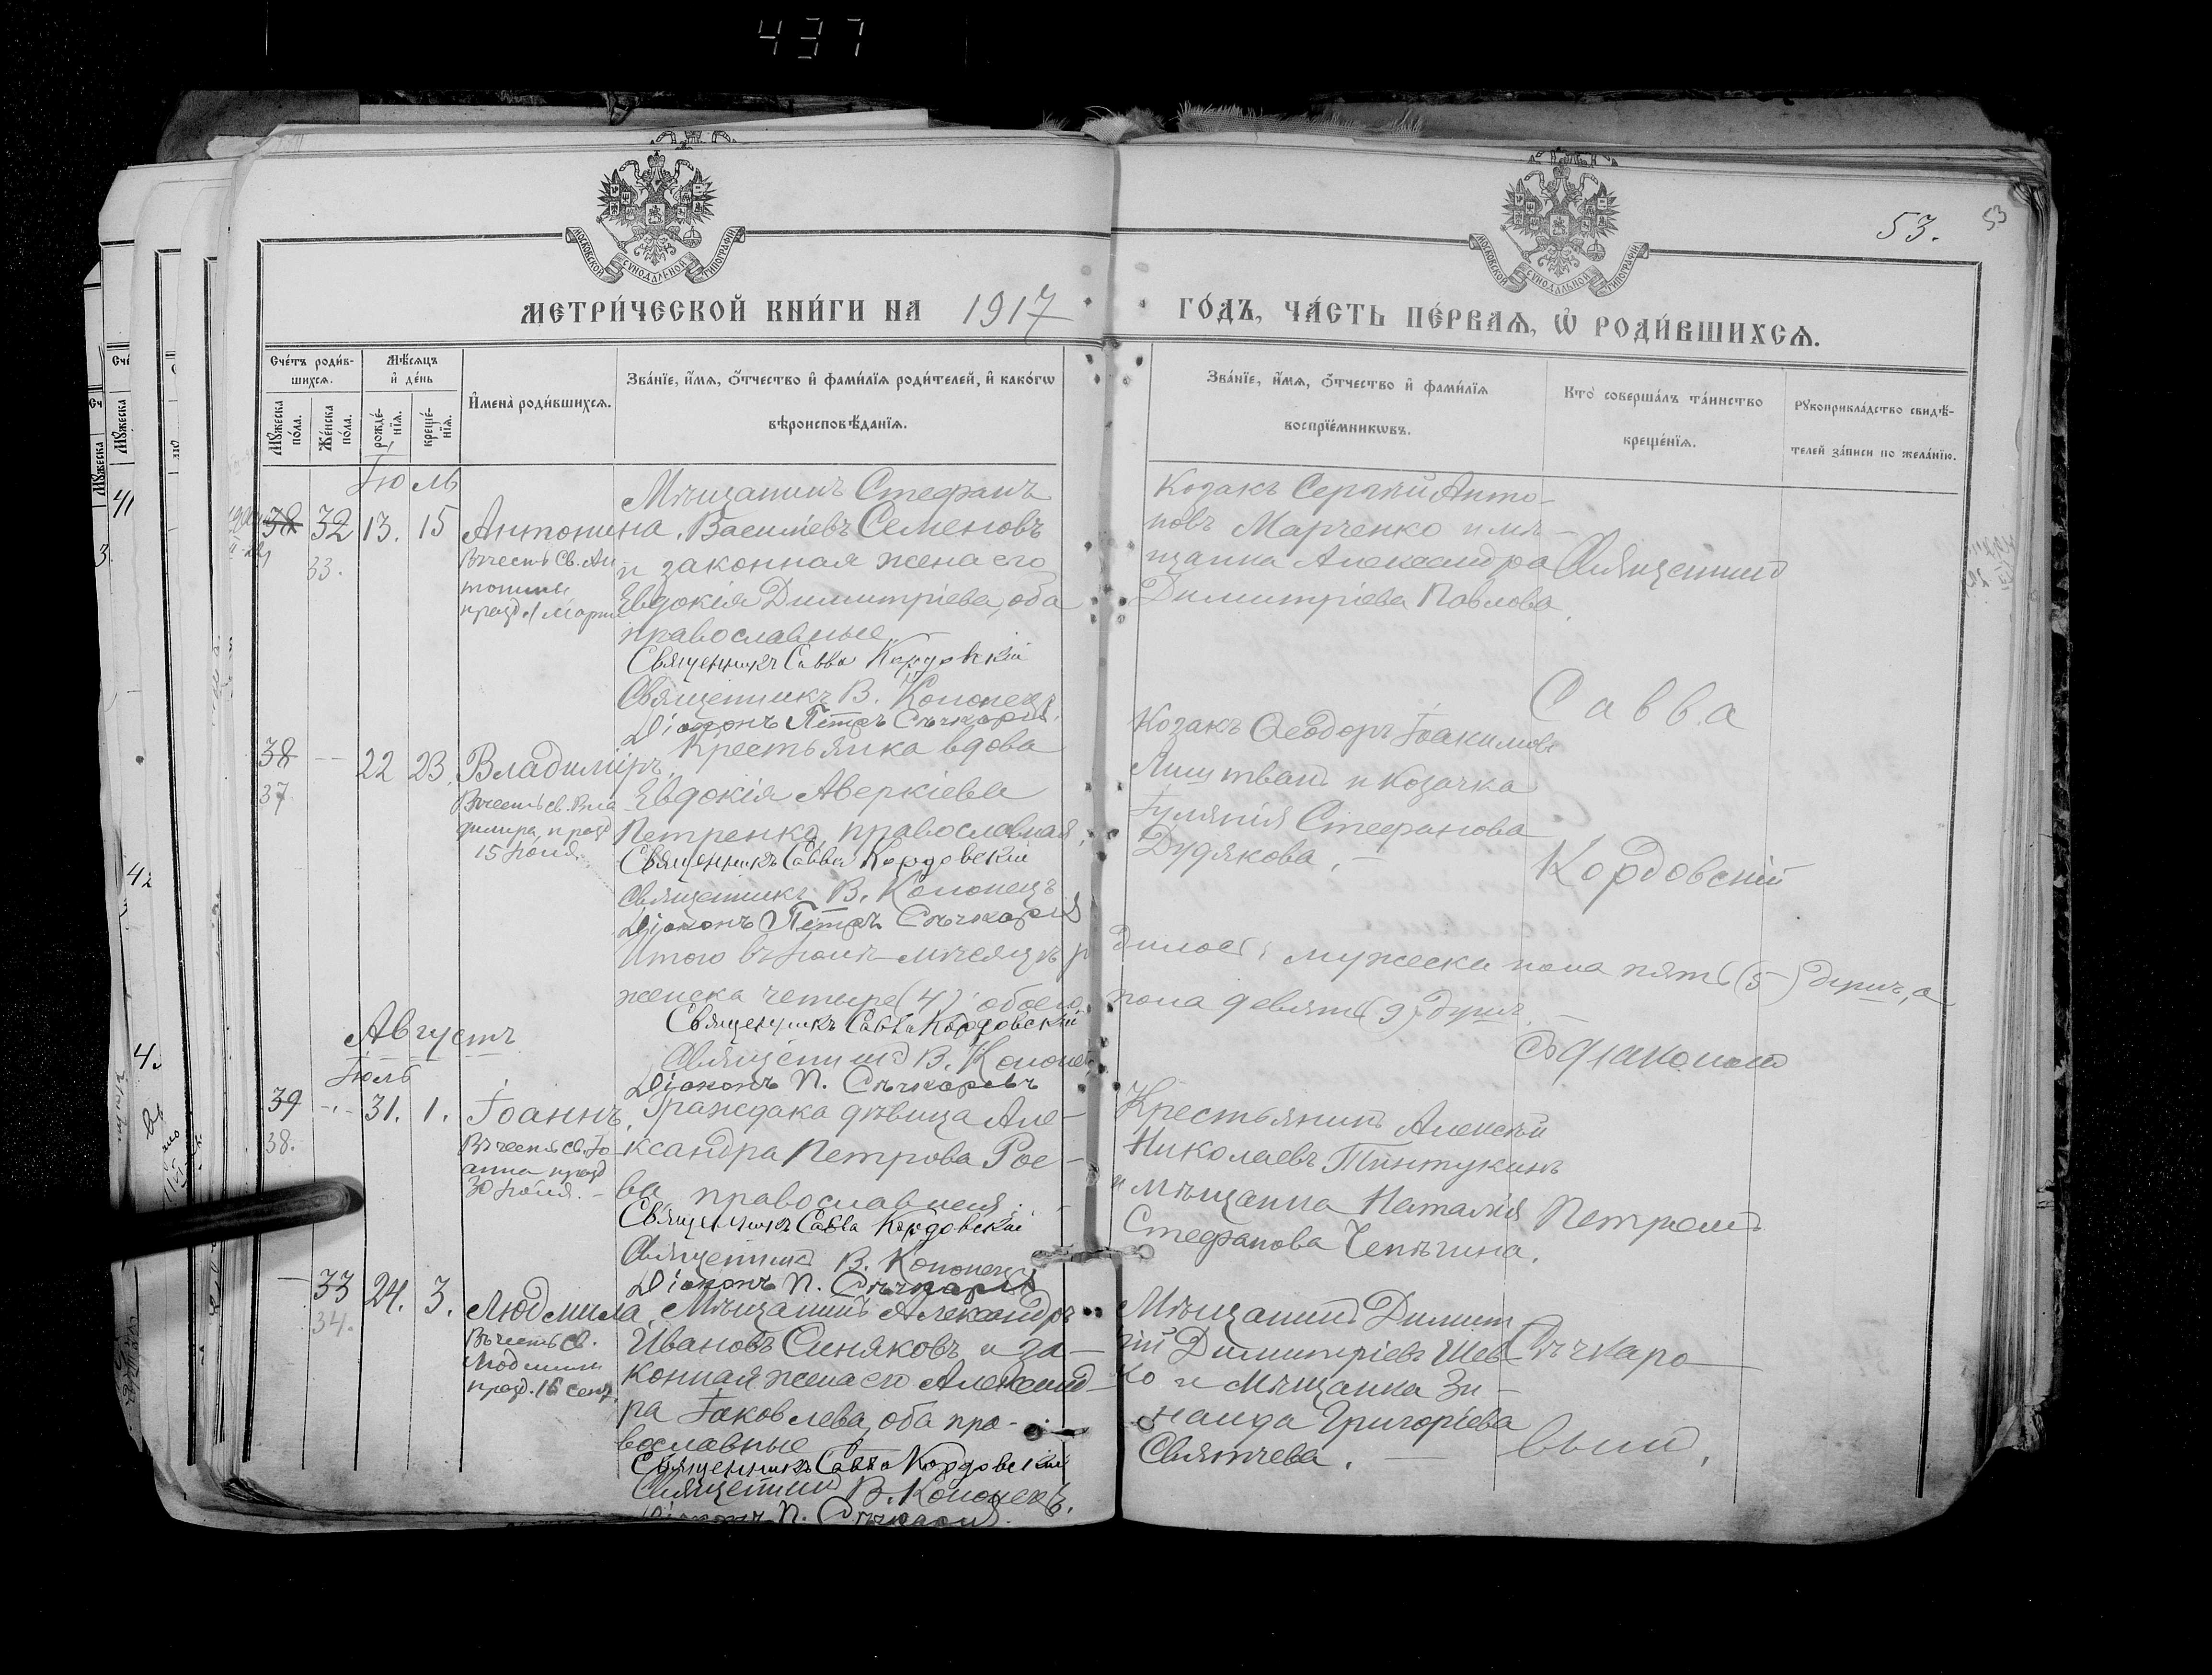 437
МОСКОВСКОЙ СѴНОДАЛЬНОЙ ТИПОГРАФІИ
МОСКОВСКОЙ СѴНОДАЛЬНОЙ ТИПОГРАФІИ
53.
53
МЕТРИ́ЧЕСКОЙ КНИ́ГИ НА 1917
ГО́ДЪ, ЧА́СТЬ ПЕ́РВАѦ, Ѡ҆ РОДИ́ВШИХСѦ.
Сче́тъ роди́в-
шихсѧ.
Мѣ́сѧцъ
и҆ де́нь
Мꙋ́жеска
по́ла.
Же́нска
по́ла.
рожде́-
нїѧ.
креще́-
нїѧ.
И҆мена̀ роди́вшихсѧ.
Зва́нїе, и҆́мѧ, ѻ҆́тчество и҆ фами́лїѧ роди́телей, и҆ како́гѡ
вѣроисповѣ́данїѧ.
Зва́нїе, и҆́мѧ, ѻ҆́тчество и҆ фами́лїѧ
воспрїе́мникѡвъ.
Кто̀ соверша́лъ та́инство
креще́нїѧ.
Рꙋкоприкла́дство свидѣ́-
телей за́писи по жела́нїю.
Іюль
38 32 13. 15 Антонина.
33.
Въ честь Св. Ан
тонины
празд. 1 Марта
Мѣщанинъ Стефанъ
Васильевъ Семеновъ
и законная жена его
Евдокія Димитріева, оба
православные
Священникъ Савва Кордовскій
Священникъ В. Кононецъ
Діаконъ Петръ Сѣчкаревъ
Козакъ Сергѣй Анто-
новъ Марченко и мѣ-
щанка Александра
Димитріева Павлова.
Священникъ
Савва
Кордовскій
съ діакономъ
Петромъ
Сѣчкаро
вымъ.
38 -- 22 23. Владиміръ.
37
Въ честь св. Вла
диміра, празд
15 Іюля.
Крестьянка вдова
Евдокія Аверкіева
Петренко, православная,
Священникъ Савва Кордовскій
Священникъ В. Кононецъ
Діаконъ Петръ Сѣчкаревъ
Козакъ Ѳеодоръ Іоакимовъ
и Козачка
Стефанова
Дудякова.
Итого въ Іюлѣ мѣсяцѣ ро дилось: мужеска пола пять (5) душъ, а
женска четыре (4); обоего пола девять (9) душъ.
Священникъ Савва Кордовскій
Священникъ В. Кононецъ
Діаконъ П. Сѣчкаревъ
Августъ
Іюль
39 -- 31. 1. Іоаннъ.
38.
Въ честь св. Іо
анна празд
30 Іюля.
Гражданка дѣвица Але-
ксандра Петрова Рое-
ва православная;
Священникъ Савва Кордовскій
Священникъ В. Кононецъ
Діаконъ П. Сѣчкаревъ
Крестьянинъ Алексѣй
Николаевъ Тинтукинъ
и мѣщанка Наталія
Стефанова Чепѣгина.
— 33 24. 3. Людмила.
34.
Въ честь св.
Людмилы
празд. 16 Сент.
Мѣщанинъ Александръ
Ивановъ Синяковъ и за-
конная жена его Александ-
ра Іаковлева, оба пра-
вославные
Священникъ Савва Кордовскій
Священникъ В. Кононецъ.
Діаконъ П. Сѣчкаревъ.
Мѣщанинъ Димит
рій Димитріевъ Шев-
ко и Мѣщанка Зи-
наида Григорьева